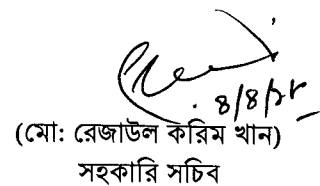 (মো: রেজাউল করিম খান)
সহকারি সচিব